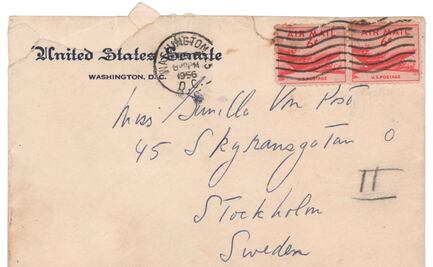 United States Senate
WASHINGTON, D.C.
WASHINGTON
1956
D.C.
AIR MAIL 6¢
U.S. POSTAGE
AIR MAIL 6¢
U.S. POSTAGE
Miss Gunilla Von Post
45 Skyransgatan O
II
Stockholm
Sweden